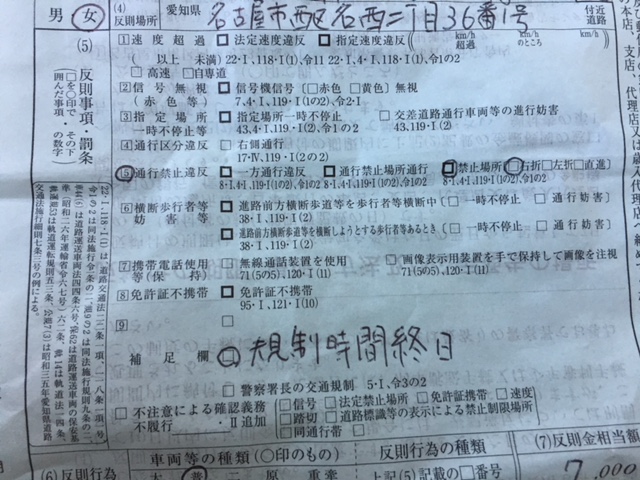 男 女 (4)反則場所 愛知県 名古屋市西区名西二丁目36番1号 付近道路
(5) 反則事項・罰条
(□を○印で囲んだ事項・その下の数字)
1 速度超過 □法定速度違反 □指定速度違反 ( km/h超過 km/hのところ)
(以上 未満) 22・Ⅰ,118・Ⅰ(1),令11 22・Ⅰ,4・Ⅰ,118・Ⅰ(1),令1の2
□高速 □自専道
2 信号無視 □信号機信号(□赤色 □黄色)無視
(赤色等) 7,4・Ⅰ,119・Ⅰ(1の2),令2・Ⅰ
3 指定場所一時不停止等 □指定場所一時不停止 □交差道路通行車両等の進行妨害
43,4・Ⅰ,119・Ⅰ(2),令1の2 43,119・Ⅰ(2)
4 通行区分違反 □右側通行
17・Ⅳ,119・Ⅰ(2の2)
5 通行禁止違反 □一方通行違反 □通行禁止場所通行 □禁止場所(□右折 □左折 □直進)
8・Ⅰ,4・Ⅰ,119・Ⅰ(1の2),令1の2 8・Ⅰ,4・Ⅰ,119・Ⅰ(1の2),令1の2 8・Ⅰ,4・Ⅰ,119・Ⅰ(1の2),令1の2
6 横断歩行者等妨害等 □進路前方横断歩道等を歩行者等横断中(□一時不停止 □通行妨害)
38・Ⅰ,119・Ⅰ(2)
□進路前方横断歩道等を横断しようとする歩行者等あるとき(□一時不停止 □通行妨害)
38・Ⅰ,119・Ⅰ(2)
7 携帯電話使用等(保持) □無線通話装置を使用 □画像表示用装置を手で保持して画像を注視
71(5の5),120・Ⅰ(11) 71(5の5),120・Ⅰ(11)
8 免許証不携帯 □免許証不携帯
95・Ⅰ,121・Ⅰ(10)
9 □
補足欄 □規制時間終日
□警察署長の交通規制 5・Ⅰ,令3の2
□不注意による確認義務不履行 ‥Ⅱ追加 □信号 □法定禁止場所 □免許証携帯 □速度
□踏切 □道路標識等の表示による禁止制限場所
□同通行帯
(6)反則行為 車両等の種類(○印のもの) 反則行為の種類 (7)反則金相当額
大 普 二 原 重 上記(5)記載の□番号 7,000